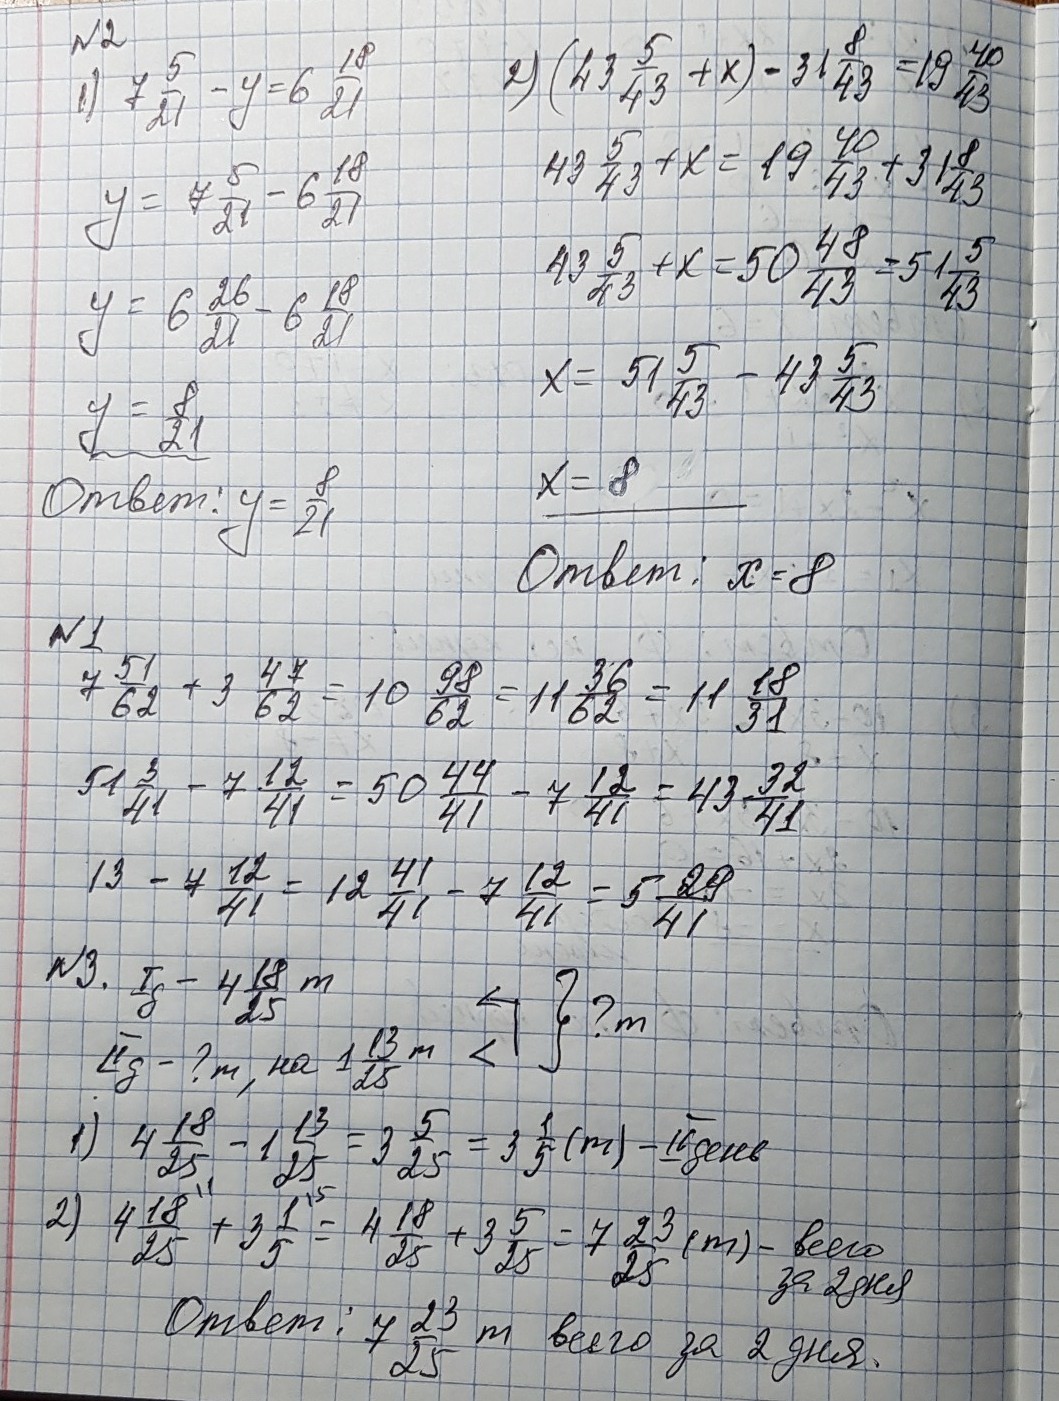 №2
1) 7 5/21 - y = 6 18/21
y = 7 5/21 - 6 18/21
y = 6 26/21 - 6 18/21
y = 8/21
Ответ: y = 8/21
2) (43 5/43 + x) - 31 8/43 = 19 40/43
43 5/43 + x = 19 40/43 + 31 8/43
43 5/43 + x = 50 48/43 = 51 5/43
x = 51 5/43 - 43 5/43
x = 8
Ответ: x = 8
№1
7 51/62 + 3 47/62 = 10 98/62 = 11 36/62 = 11 18/31
51 3/41 - 7 12/41 = 50 44/41 - 7 12/41 = 43 32/41
13 - 7 12/41 = 12 41/41 - 7 12/41 = 5 29/41
№3. Iд - 4 18/25 т
} ?т
IIд - ?т, на 1 13/25 т <
1) 4 18/25 - 1 13/25 = 3 5/25 = 3 1/5 (т) - II день
2) 4 18/25 \1 + 3 1/5 \5 = 4 18/25 + 3 5/25 = 7 23/25 (т) - всего
за 2 дня
Ответ: 7 23/25 т всего за 2 дня.